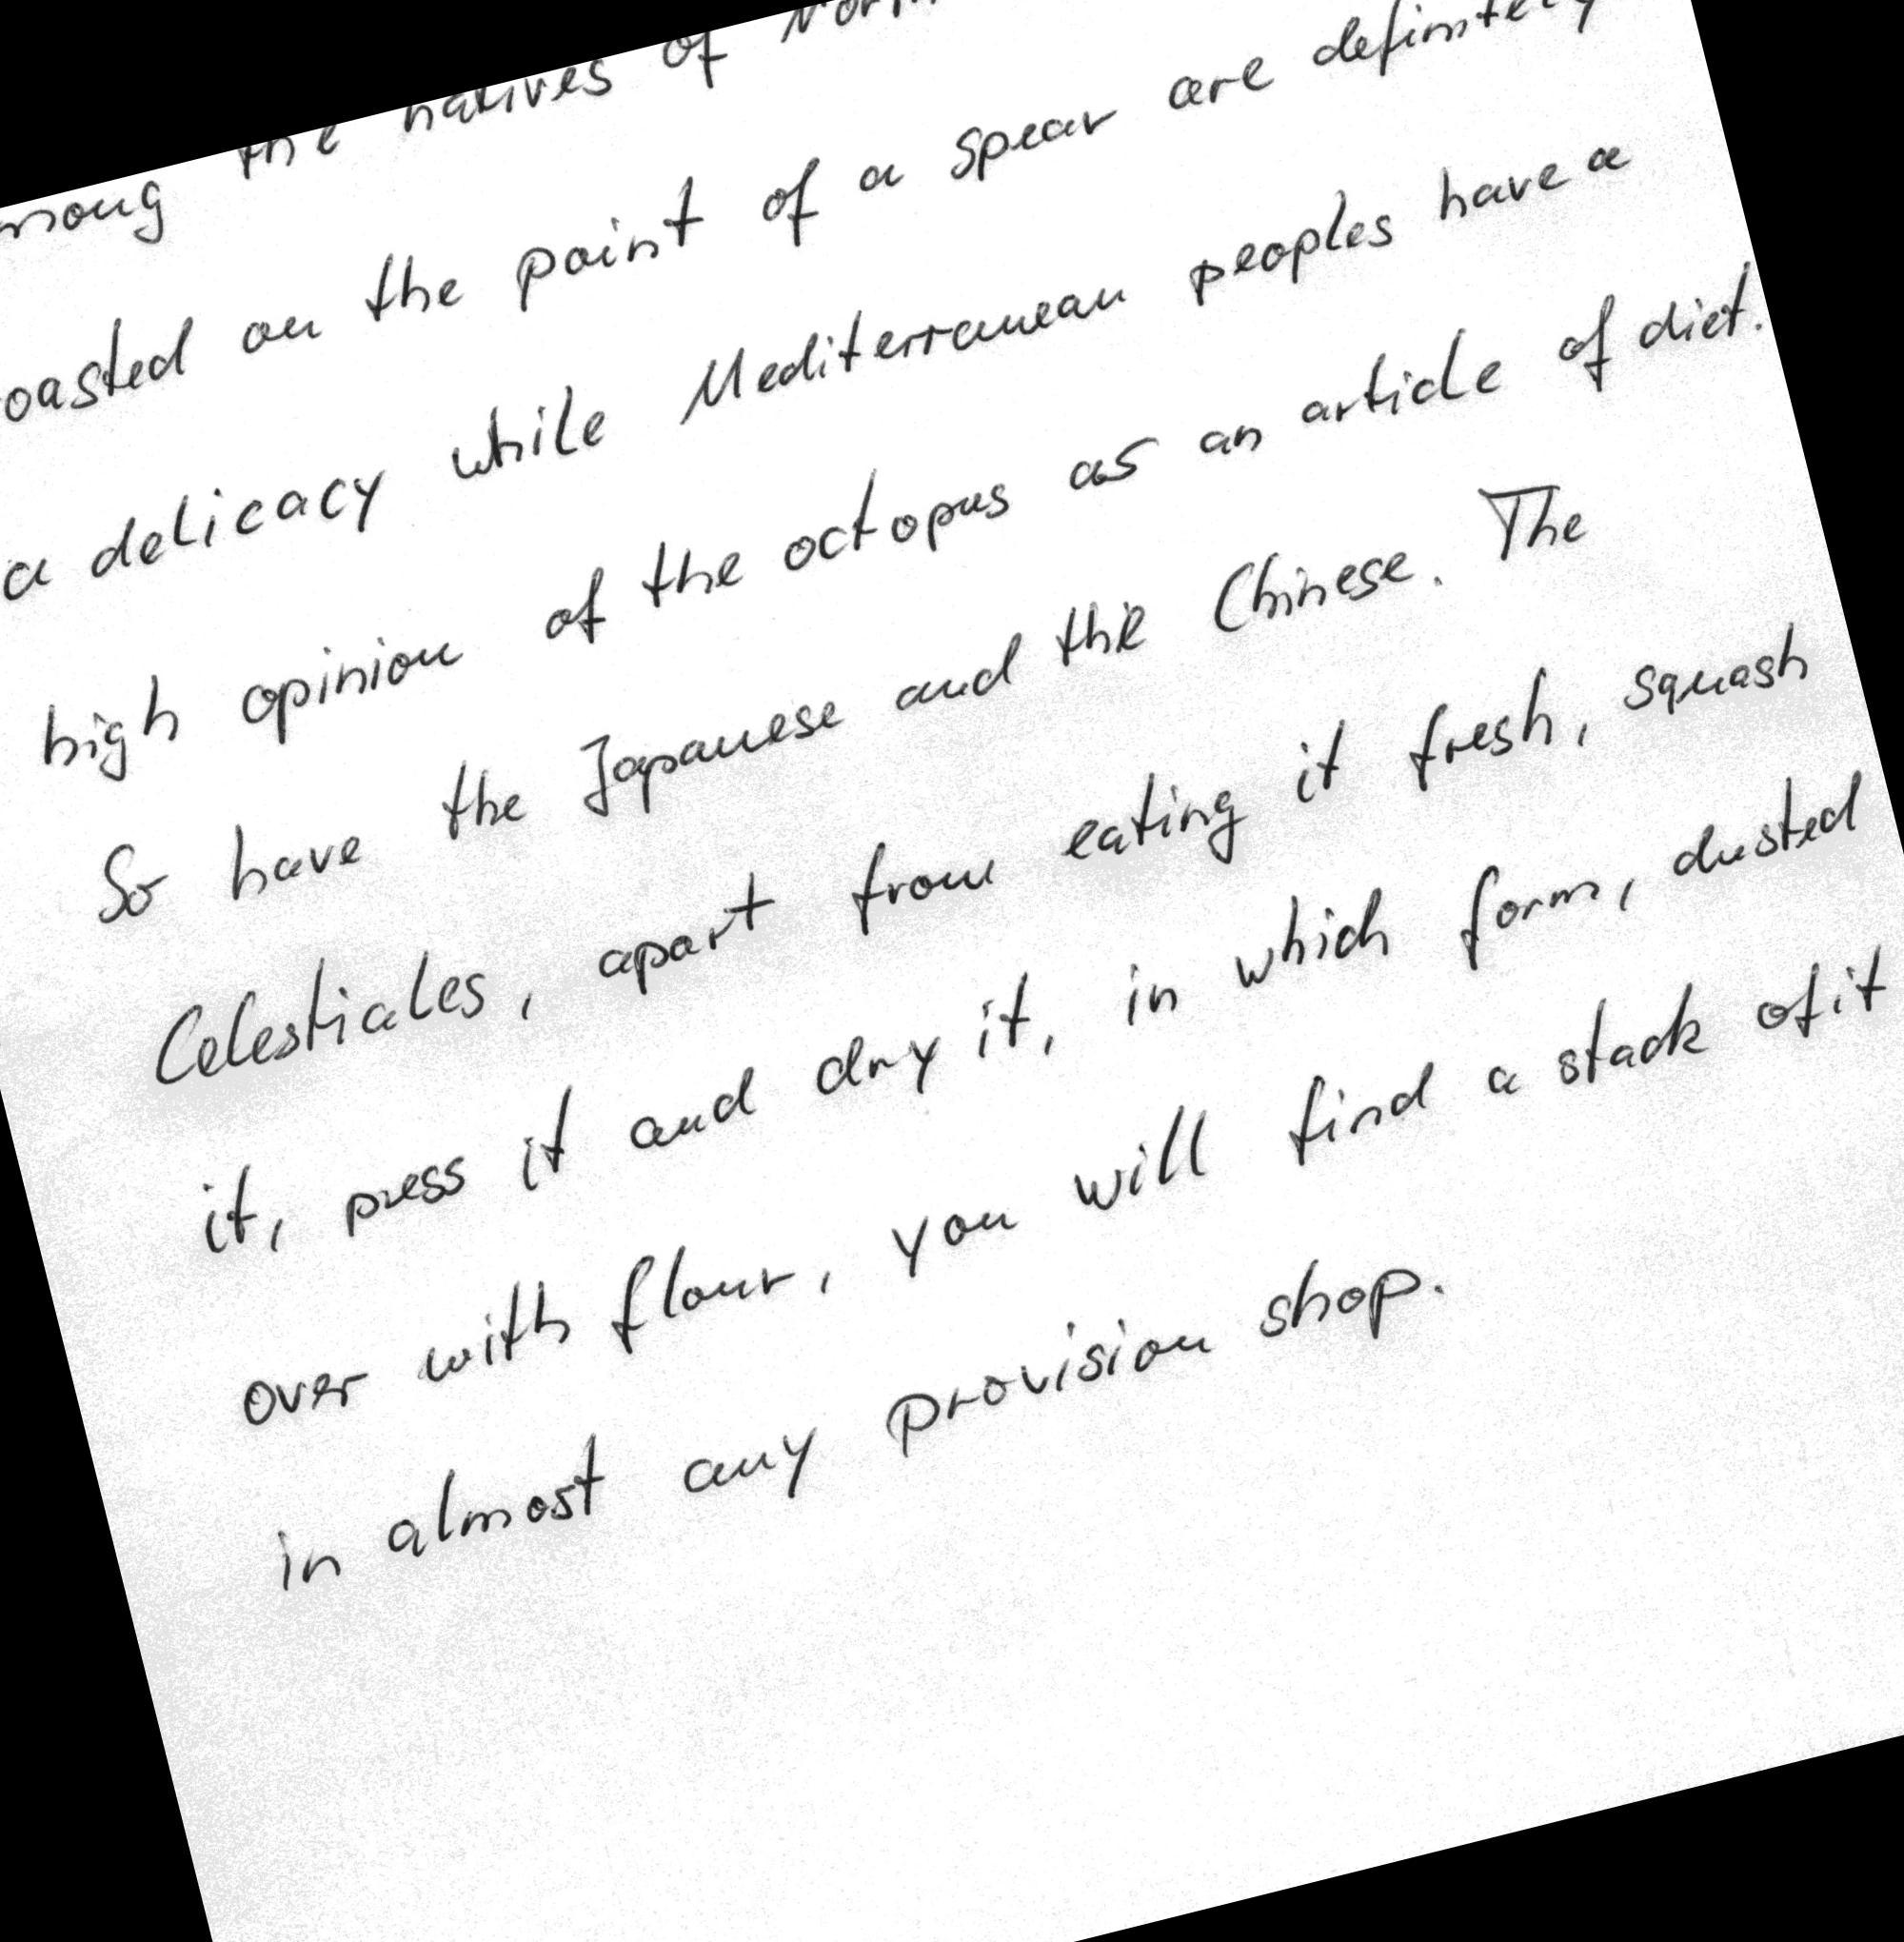 the natives of
on the point of a spear are definitely
a delicacy while Mediterranean peoples have a
high opinion of the octopus as an article of diet.
So have the Japanese and the Chinese. The
Celestiales, apart from eating it fresh, squash
it, press it and dry it, in which form, dusted
over with flour, you will find a stack of it
in almost any provision shop.